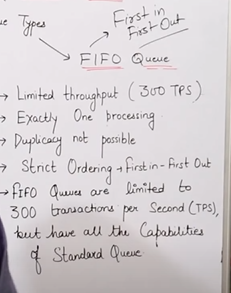 First in
First Out
Types
FIFO Queue
→ Limited throughput (300 TPS)
→ Exactly One processing
→ Duplicacy not possible
→ Strict Ordering → First in - First Out
→ FIFO Queues are limited to
300 transactions per Second (TPS),
but have all the Capabilities
of Standard Queue.